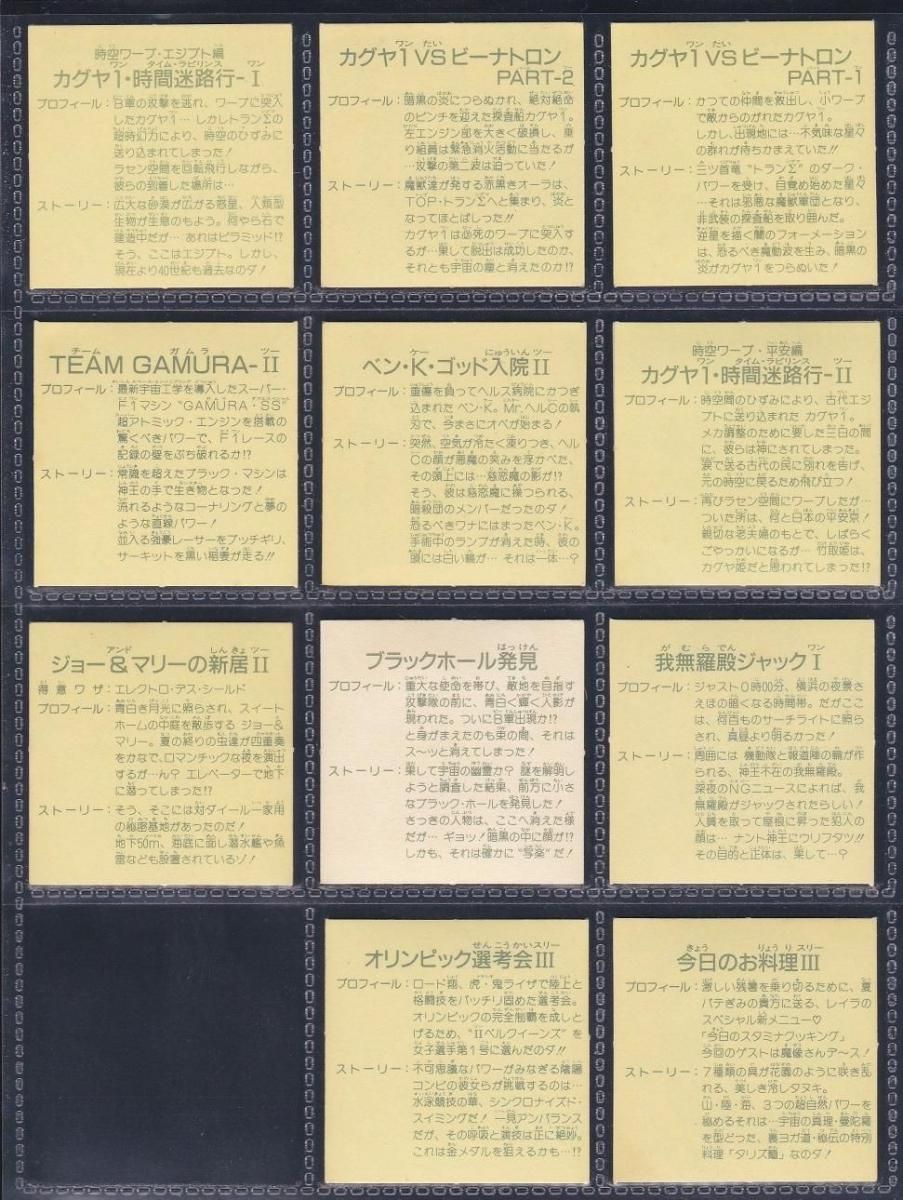 時空ワープ・エジプト編
カグヤ1・時間迷路行-I
プロフィール：B軍の攻撃を逃れ、ワープに突入
したカグヤ1… しかしトランΣの
超時幻力により、時空のひずみに
送り込まれてしまった！
ラセン空間を回転飛行しながら、
彼らの到着した場所は…
ストーリー：広大な砂漠が広がる惑星、人類型
生物が生息のもよう。何やら石で
建造中だが… あれはピラミッド!?
そう、ここはエジプト。しかし、
現在より40世紀も過去なのダ！
カグヤ1 VSビーナトロン
PART-2
プロフィール：暗黒の炎につらぬかれ、絶対絶命
のピンチを迎えた探査船カグヤ1。
左エンジン部を大きく破損し、乗
り組員は緊急消火活動に当たるが
…攻撃の第二波は迫っていた！
ストーリー：魔獣達が発する赤黒きオーラは、
TOP・トランΣへと集まり、炎と
なってほとばしった!!
カグヤ1は必死のワープに突入す
るが…果して脱出は成功したのか、
それとも宇宙の塵と消えたのか!?
カグヤ1 VSビーナトロン
PART-1
プロフィール：かつての仲間を救出し、小ワープ
で敵からのがれたカグヤ1。
しかし、出現地には…不気味な星々
の群れが待ちかまえていた!!
ストーリー：三ツ首竜“トランΣ”のダーク・
パワーを受け、目覚め始めた星々
…それは邪悪な魔獣軍団となり、
非武装の探査船を取り囲んだ。
逆星を描く闇のフォーメーション
は、恐るべき魔動波を生み、暗黒の
炎がカグヤ1をつらぬいた！
TEAM GAMURA-II
プロフィール：最新宇宙工学を導入したスーパー・
F1マシン“GAMURA・SS”
超アトミック・エンジンを搭載の
驚くべきパワーで、F1レースの
記録の壁をぶち破れるか!?
ストーリー：常識を超えたブラック・マシンは
神王の手で生き物となった！
流れるようなコーナリングと夢の
ような直線パワー！
並入る強豪レーサーをブッチギリ、
サーキットを黒い稲妻が走る!!
ベン・K・ゴッド入院II
プロフィール：重傷を負ってヘルス病院にかつぎ
込まれたベン・K。Mr.ヘルCの執
刃で、今まさにオペが始まる！
ストーリー：突然、空気が冷たく凍りつき、ヘル
Cの顔が悪魔の笑みを浮かべた、
その頭上には…慈恋魔の影が!?
そう、彼は慈恋魔に操つられる、
暗殺団のメンバーだったのダ！
恐るべきワナにはまったベン・K。
手術中のランプが消えた時、彼の
頭には白い輪が… それは一体…？
時空ワープ・平安編
カグヤ1・時間迷路行-II
プロフィール：時空間のひずみにより、古代エジ
プトに送り込まれた カグヤ1。
メカ調整のために要した三日の間
に、彼らは神にされてしまった。
涙で送る古代の民に別れを告げ、
元の時空に戻るため飛び立つ！
ストーリー：再びラセン空間にワープしたが…
ついた所は、何と日本の平安京！
親切な老夫婦のもとで、しばらく
ごやっかいになるが… 竹取姫は、
カグヤ姫だと思われてしまった!?
ジョー＆マリーの新居II
得意ワザ：エレクトロ・デス・シールド
プロフィール：青白き月光に照らされ、スイート
ホームの中庭を散歩する ジョー＆
マリー。夏の終りの虫達が四重奏
をかなで、ロマンチックな夜を演出
するが…ん？ エレベーターで地下
に潜ってしまった!?
ストーリー：そう、そこには対ダイール一家用
の秘密基地があったのだ！
地下50m、海底に面し潜水艦や魚
雷なども設置されているゾ！
ブラックホール発見
プロフィール：重大な使命を帯び、敵地を目指す
攻撃隊の前に、青白く輝く人影が
現われた。ついにB軍出現か!?
と身がまえたのも束の間、それは
ス〜ッと消えてしまった！
ストーリー：果して宇宙の幽霊か？ 謎を解明し
ようと調査した結果、前方に小さ
なブラック・ホールを発見した！
さっきの人物は、ここへ消えた様
だが… ギョッ！暗黒の中に顔が!?
しかも、それは確かに“写楽”だ！
我無羅殿ジャックI
プロフィール：ジャスト0時00分、横浜の夜景さ
えほの暗くなる時間帯。だがここ
は、何百ものサーチライトに照ら
され、真昼より明るかった！
ストーリー：周囲には 機動隊と報道陣の輪が作
られる、神王不在の我無羅殿。
深夜のNGニュースによれば、我
無羅殿がジャックされたらしい！
人員を取って屋根に昇った犯人の
顔は… ナント神王にウリフタツ!!
その目的と正体は、果して…？
オリンピック選考会III
プロフィール：ロード翔、虎・鬼ライザで陸上と
格闘技をバッチリ固めた選考会。
オリンピックの完全制覇を成しと
げるため、“IIベルクイーンズ”を
女子選手第1号に選んだのダ!!
ストーリー：不可思議なパワーがみなぎる陰陽
コンビの彼女らが挑戦するのは…
水泳競技の華、シンクロナイズド・
スイミングだ！ 一見アンバランス
だが、その呼吸と演技は正に絶妙。
これは金メダルを狙えるかも…!?
今日のお料理III
プロフィール：激しい残暑を乗り切るために、夏
バテぎみの貴方に送る、レイラの
スペシャル新メニュー♡
「今日のスタミナクッキング」
今回のゲストは魔像さんデース！
ストーリー：7種類の具が花園のように咲き乱
れる、美しき冷しタヌキ。
山・陸・海、3つの超自然パワーを
秘めるそれは…宇宙の真理・曼陀羅
を型どった、裏ヨガ道・秘伝の特別
料理「タリズ麺」なのダ！